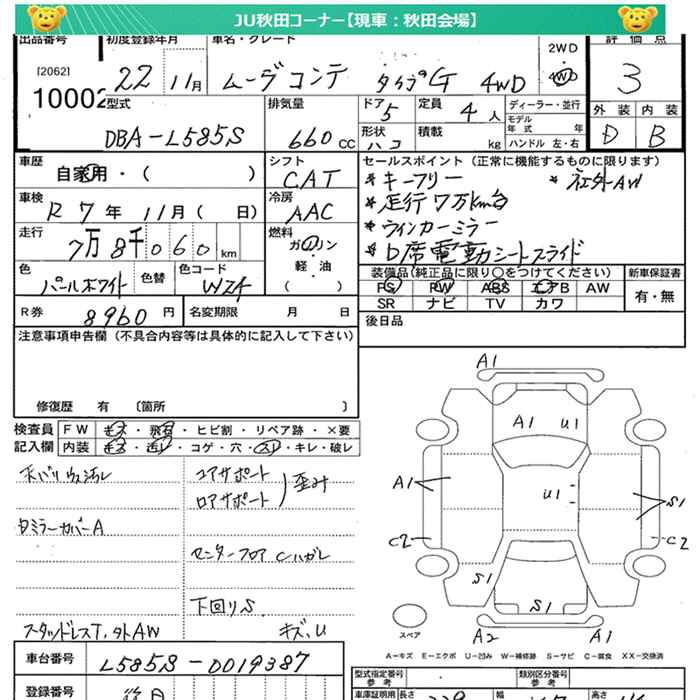 JU秋田コーナー【現車：秋田会場】
出品番号 初度登録年月 車名・グレード 2WD 評価点
[2062] 22 11月 ムーヴコンテ タイプG 4WD 4WD 3
10002
型式 排気量 ドア 5 定員 4人 ディーラー・並行 外装 内装
DBA-L585S 660cc 形状 ハコ 積載 kg モデル年式 年 D B
ハンドル 左・右
車歴 自家用・( ) シフト CAT セールスポイント（正常に機能するものに限ります）
＊キーフリー ＊社外AW
車検 R7年11月( 日) 冷房 AAC ＊走行7万km台
走行 7万8千060km 燃料 ガソリン ＊ウィンカーミラー
軽・油 ＊D席電動シートスライド
( )
色 パールホワイト 色替 色コード W24 装備品（純正品に限り○をつけてください） 新車保証書
PS PW ABS エアB AW 有・無
SR ナビ TV カワ
R券 8960円 名変期限 月 日 後日品
注意事項申告欄（不具合内容等は具体的に記入して下さい）
修復歴 有 〔箇所 〕
検査員 FW キズ・飛石・ヒビ割・リペア跡・×要
記入欄 内装 キズ・汚レ・コゲ・穴・スリ・キレ・破レ
天バリウス汚レ
コアサポート
ロアサポート 歪み
ミラーカバーA
センターフロアCハガレ
下回りS
スタッドレスT.タトAW キズ、U
A1
A1 U1
A1 U1 S1
C2 C2
S1
S1
A2 A1
スペア
A－キズ E－エクボ U－凹み W－補修跡 S－サビ C－腐食 XX－交換済
車台番号 L585S-0019387
登録番号
型式指定番号 参考 類別区分番号 参考
車庫証明用 長さ 幅 高さ